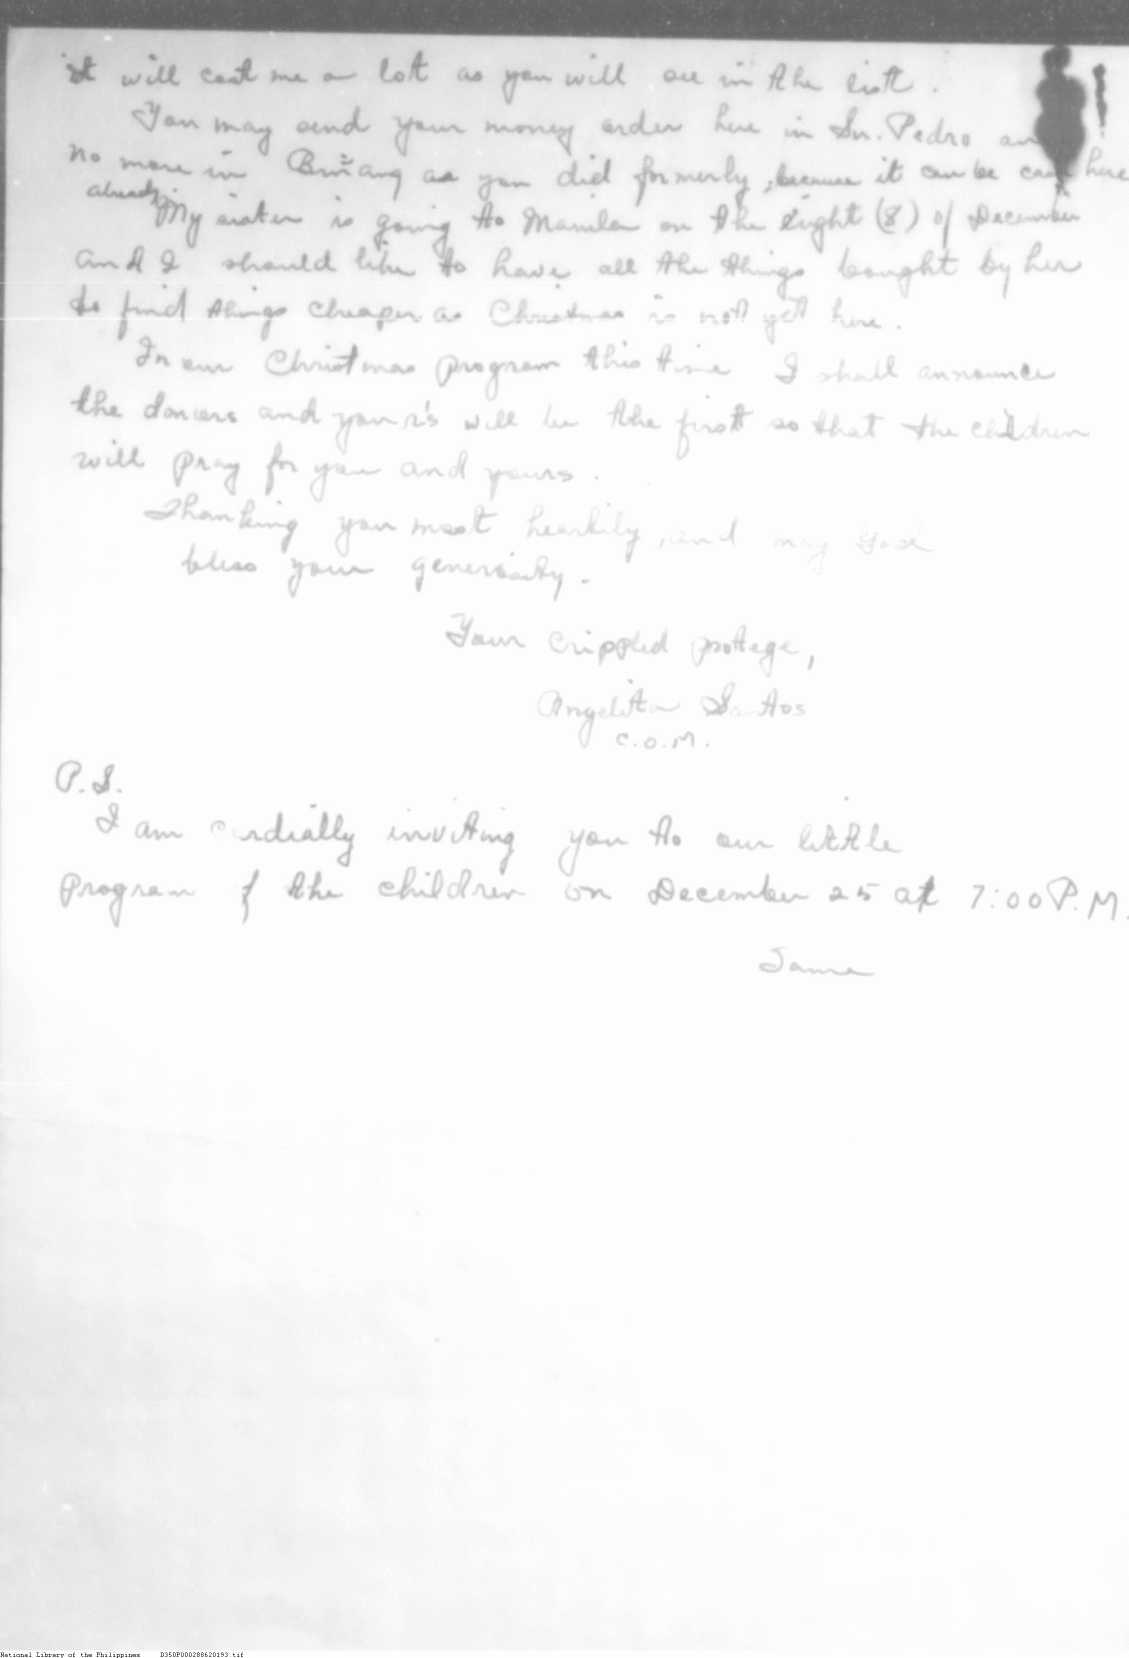 it will cost me a lot as you will see in the list.
You may send your money order here in Sn. Pedro and
no more in Biñang as you did formerly, because it can be cash here
already. My sister is going to Manila on the eight (8) of December
and I should like to have all the things bought by her
to find things cheaper as Christmas is not yet here.
In our Christmas program this time I shall announce
the donors and yours will be the first so that the children
will pray for you and yours.
Thanking you most heartily, and may God
bless your generosity.
Your crippled protege,
Angelita Santos
C.O.M.
P.S.
I am cordially inviting you to our little
program of the children on December 25 at 7:00 P.M.
Same
National Library of the Philippines D350P000288620193.tif